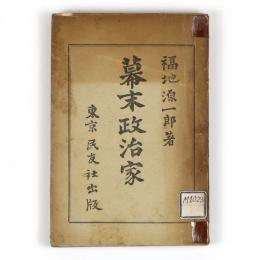 福地源一郎著
幕末政治家
東京民友社出版
M1023